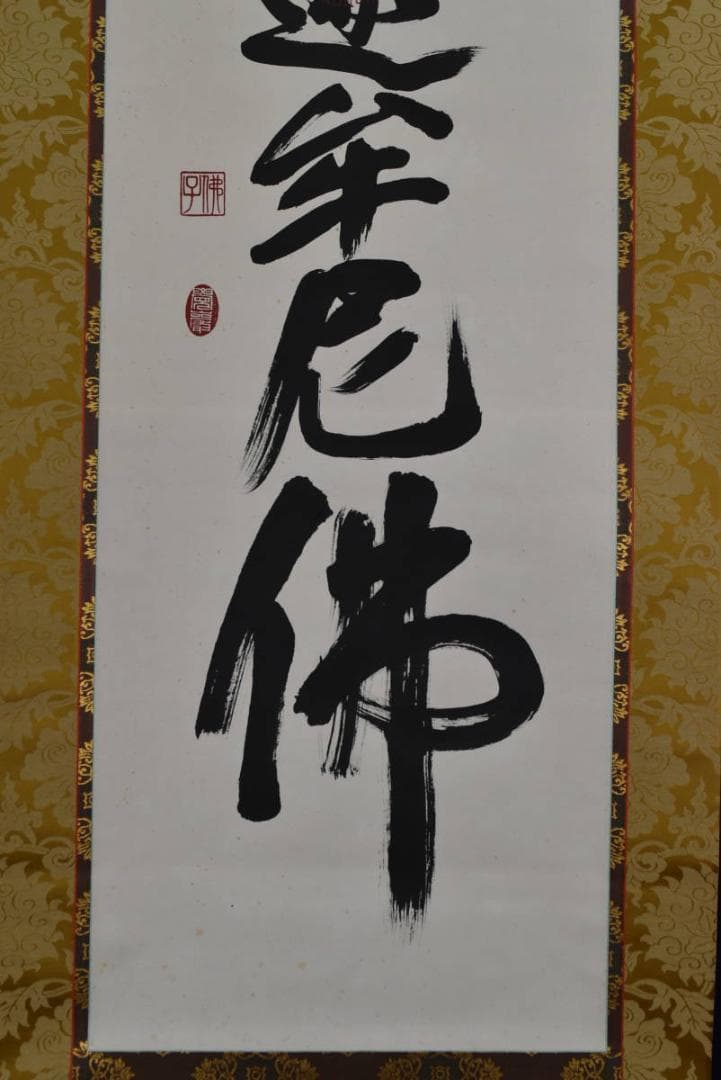 迦牟尼佛
佛子